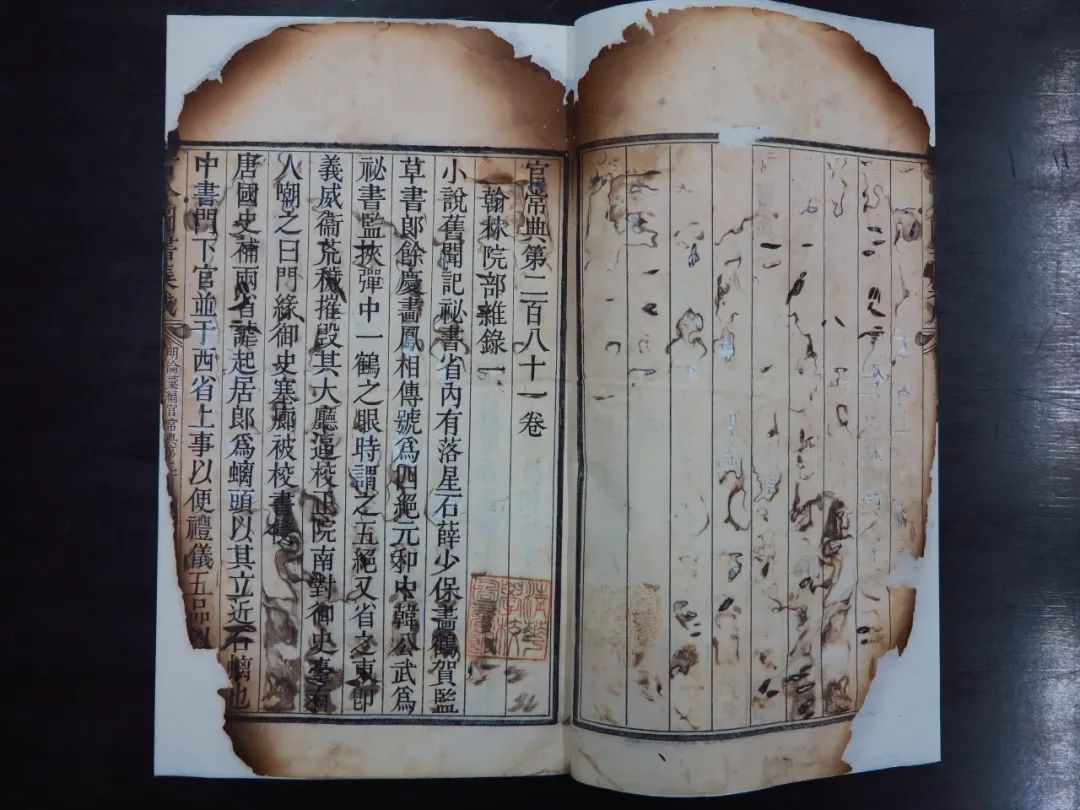 官常典第二百八十一卷
翰林院部雜錄一
小說舊聞記祕書省內有落星石薛少保畫鶴賀監
草書郎餘慶畫鳳相傳號爲四絕元和中韓公武爲
祕書監挾彈中一鶴之眼時謂之五絕又省之東卽
義威衞荒穢摧毀其大廳逼校正院南對御史臺有
人嘲之曰門緣御史塞廟被校書侵
唐國史補兩省謔起居郎爲螭頭以其立近石螭也
中書門下官並于西省上事以便禮儀五品以
今圖書集成
明倫彙編官常典第二
清華
學校
圖書